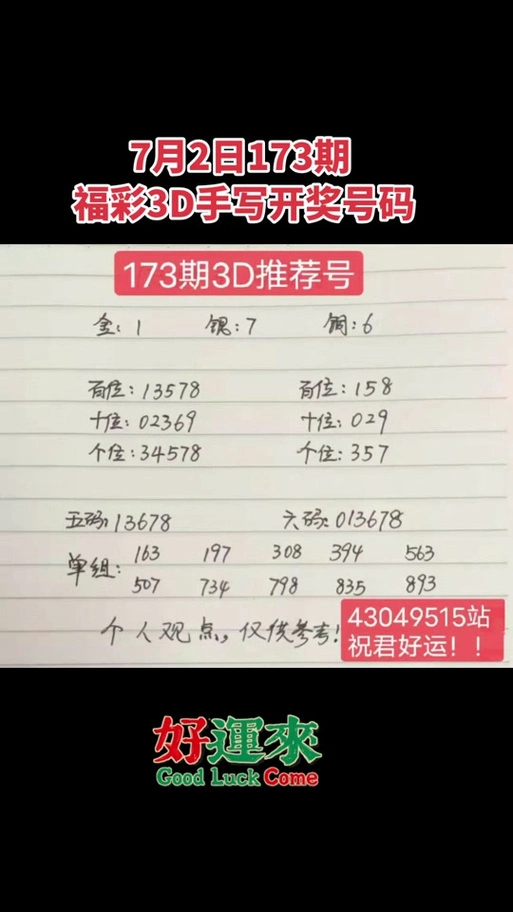 7月2日173期
福彩3D手写开奖号码
173期3D推荐号
金:1 银:7 铜:6
百位:13578 百位:158
十位:02369 十位:029
个位:34578 个位:357
五码:13678 六码:013678
单组: 163 197 308 394 563
507 734 798 835 893
个人观点,仅供参考!
43049515站
祝君好运!!
好運來
Good Luck Come